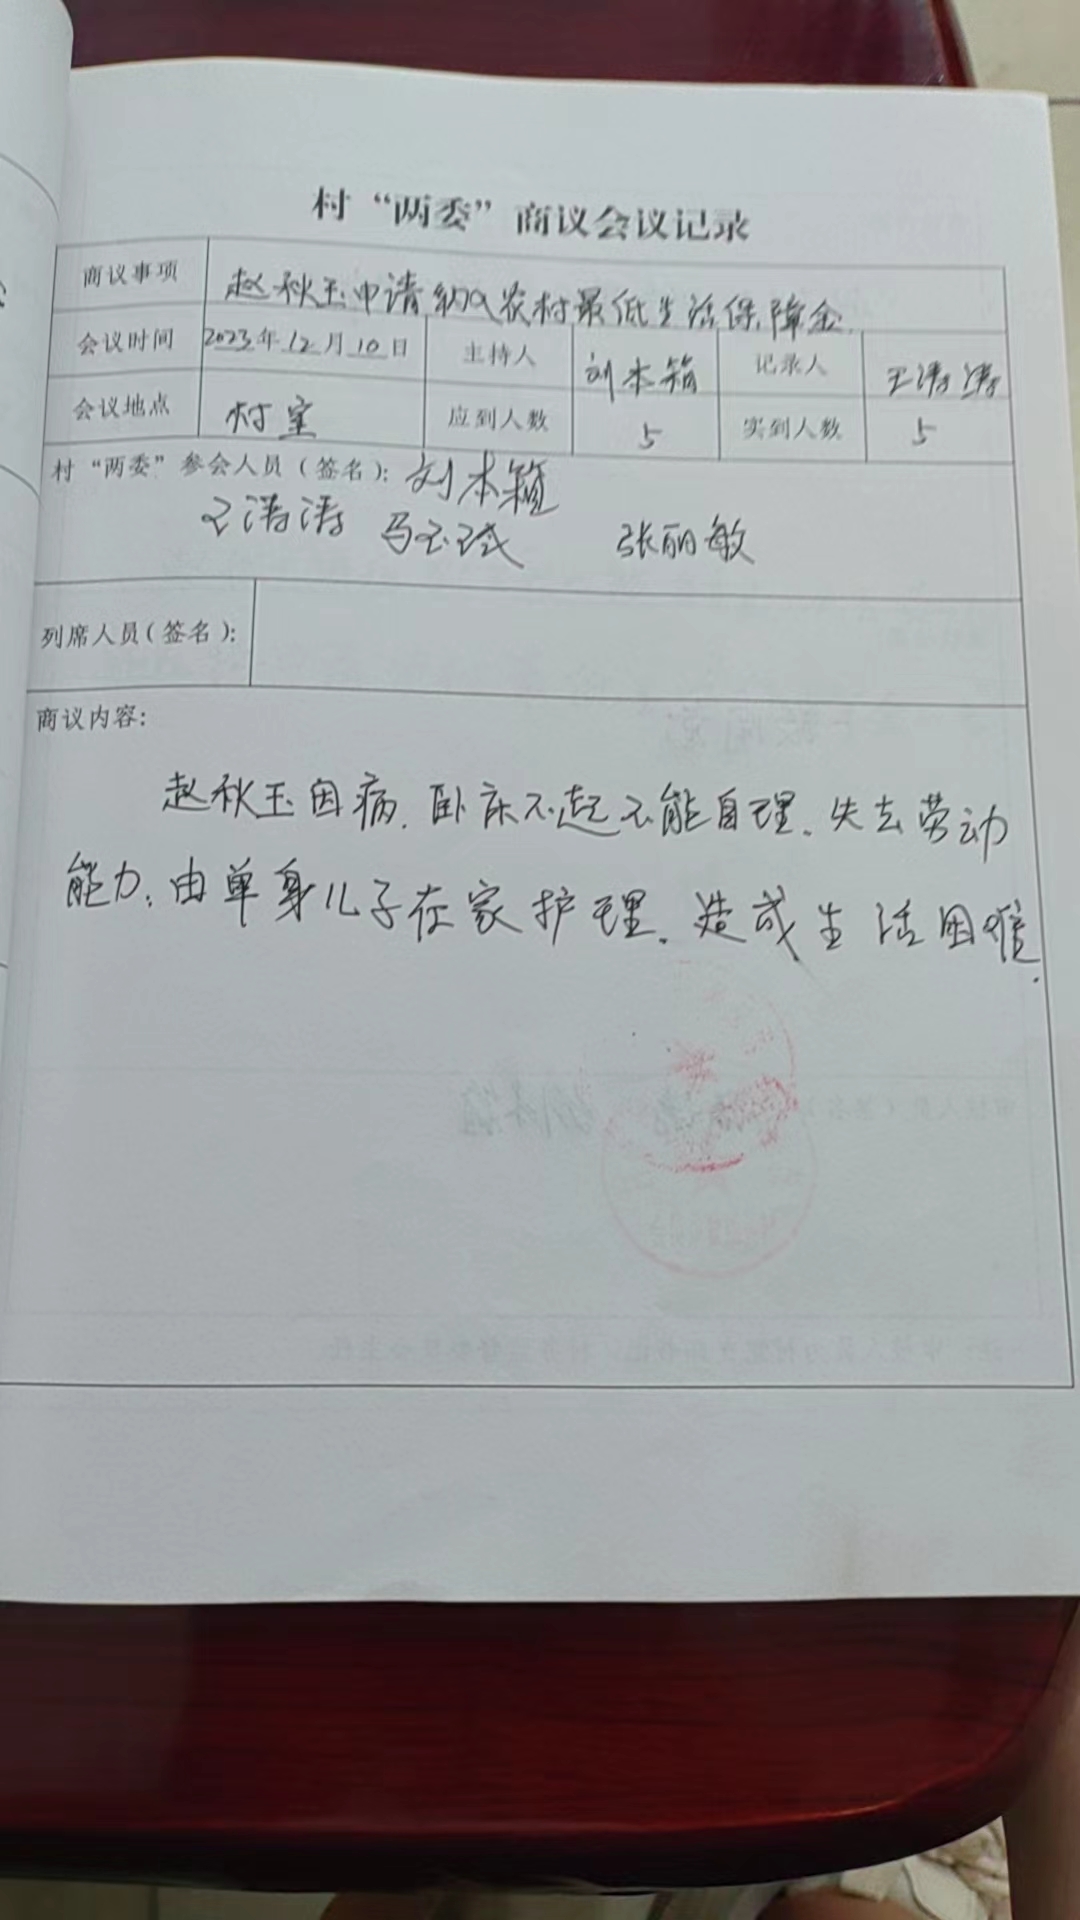 村“两委”商议会议记录
商议事项 赵秋玉申请纳入农村最低生活保障金
会议时间 2023年12月10日 主持人 刘本颖 记录人 王涛涛
会议地点 村室 应到人数 5 实到人数 5
村“两委”参会人员(签名): 刘本颖
王涛涛 马玉 张丽敏
列席人员(签名):
商议内容:
赵秋玉因病.卧床不起不能自理.失去劳动
能力,由单身儿子在家护理.造成生活困难.